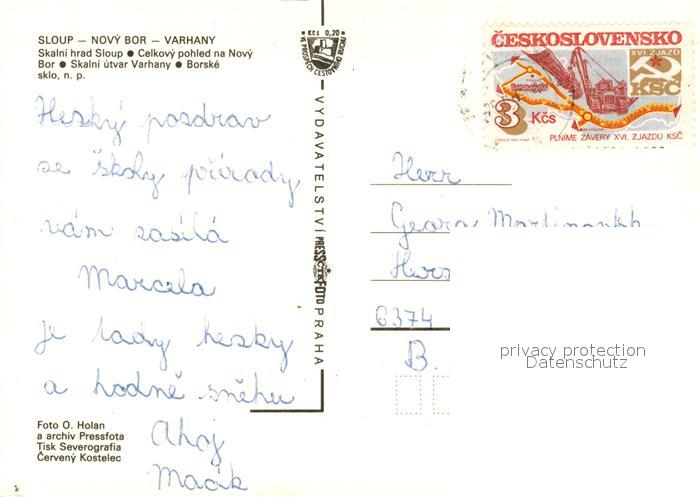 SLOUP – NOVÝ BOR – VARHANY
Skalní hrad Sloup ● Celkový pohled na Nový
Bor ● Skalní útvar Varhany ● Borské
sklo, n. p.
Hezký pozdrav
se školy přírody
vám zasílá
Marcela
je tady hezky
a hodně sněhu
Ahoj
Foto O. Holan
a archiv Pressfota
Tisk Severografia
Červený Kostelec
Kčs 0,20
VE PROSPĚCH CESTOVNÍHO RUCHU
VYDAVATELSTVÍ PRESSFOTO PRAHA
ČESKOSLOVENSKO
XVI. ZJAZD
KSČ
3 Kčs
PLNÍME ZÁVERY XVI. ZJAZDU KSČ
Herr
Georg
6374
B.
privacy protection
Datenschutz